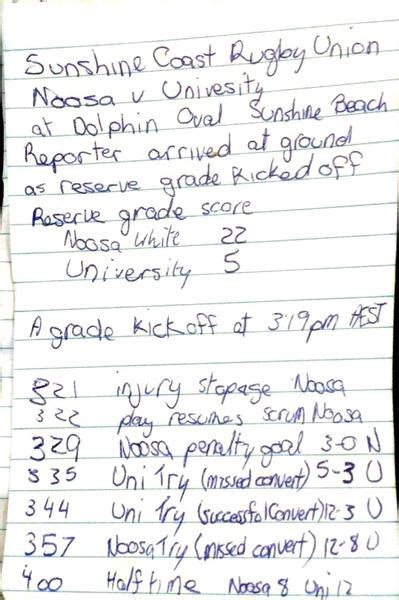 Sunshine Coast Rugby Union
Noosa v Univesity
at Dolphin Oval Sunshine Beach
Reporter arrived at ground
as reserve grade kicked off
Reserve grade score
Noosa White 22
University 5
A grade kick off at 3:19pm AEST
321 injury stopage Noosa
322 play resumes scrum Noosa
329 Noosa penalty goal 3-0 N
335 Uni Try (missed convert) 5-3 U
344 Uni Try (successful Convert) 12-3 U
357 Noosa Try (missed convert) 12-8 U
400 Half time Noosa 8 Uni 12